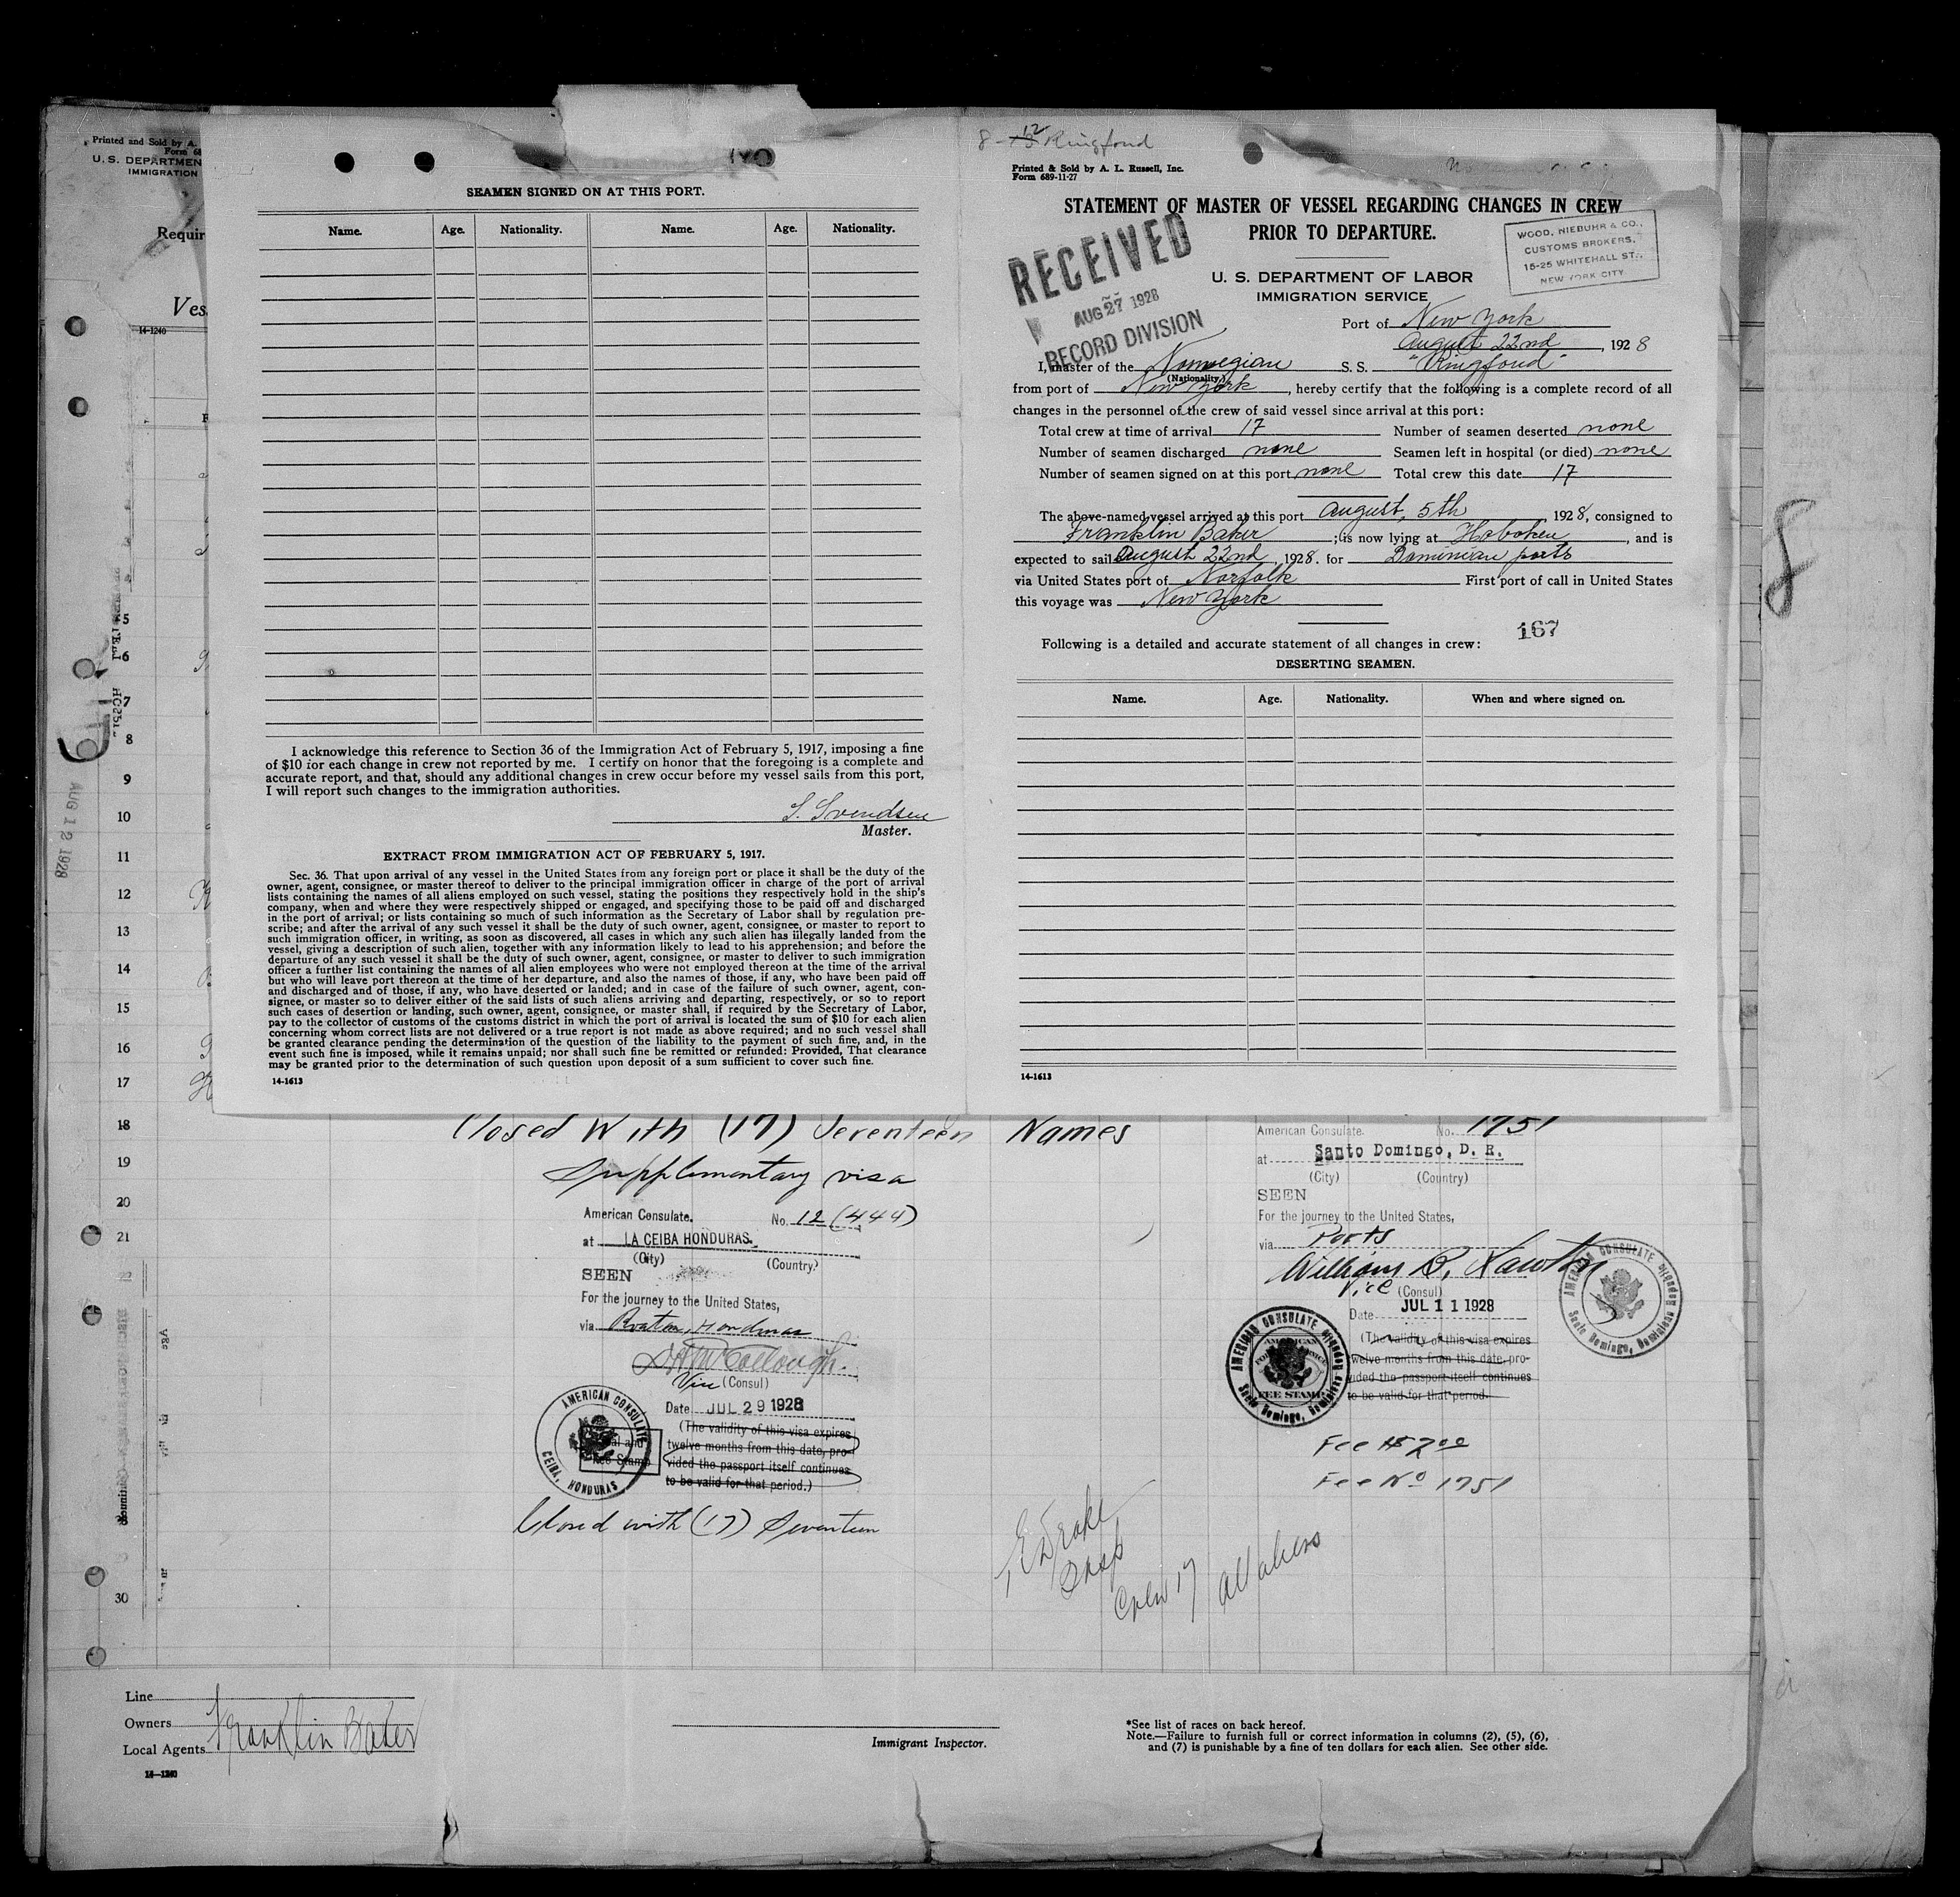 Printed and Sold by A.
Form 68
U. S. DEPARTMEN
IMMIGRATION
Requir
Ves
14-1240
5
6
7
8
9
10
11
12
13
14
15
16
17
AUG 12 1928
SEAMEN SIGNED ON AT THIS PORT.
Name. Age. Nationality. Name. Age. Nationality.
I acknowledge this reference to Section 36 of the Immigration Act of February 5, 1917, imposing a fine
of $10 for each change in crew not reported by me. I certify on honor that the foregoing is a complete and
accurate report, and that, should any additional changes in crew occur before my vessel sails from this port,
I will report such changes to the immigration authorities.
S. Svendsen
Master.
EXTRACT FROM IMMIGRATION ACT OF FEBRUARY 5, 1917.
Sec. 36. That upon arrival of any vessel in the United States from any foreign port or place it shall be the duty of the
owner, agent, consignee, or master thereof to deliver to the principal immigration officer in charge of the port of arrival
lists containing the names of all aliens employed on such vessel, stating the positions they respectively hold in the ship's
company, when and where they were respectively shipped or engaged, and specifying those to be paid off and discharged
in the port of arrival; or lists containing so much of such information as the Secretary of Labor shall by regulation pre-
scribe; and after the arrival of any such vessel it shall be the duty of such owner, agent, consignee, or master to report to
such immigration officer, in writing, as soon as discovered, all cases in which any such alien has illegally landed from the
vessel, giving a description of such alien, together with any information likely to lead to his apprehension; and before the
departure of any such vessel it shall be the duty of such owner, agent, consignee, or master to deliver to such immigration
officer a further list containing the names of all alien employees who were not employed thereon at the time of the arrival
but who will leave port thereon at the time of her departure, and also the names of those, if any, who have been paid off
and discharged and of those, if any, who have deserted or landed; and in case of the failure of such owner, agent, con-
signee, or master so to deliver either of the said lists of such aliens arriving and departing, respectively, or so to report
such cases of desertion or landing, such owner, agent, consignee, or master shall, if required by the Secretary of Labor,
pay to the collector of customs of the customs district in which the port of arrival is located the sum of $10 for each alien
concerning whom correct lists are not delivered or a true report is not made as above required; and no such vessel shall
be granted clearance pending the determination of the question of the liability to the payment of such fine, and, in the
event such fine is imposed, while it remains unpaid; nor shall such fine be remitted or refunded: Provided, That clearance
may be granted prior to the determination of such question upon deposit of a sum sufficient to cover such fine.
14-1613
8-12 Ringfond
Printed & Sold by A. L. Russell, Inc.
Form 689-11-27
STATEMENT OF MASTER OF VESSEL REGARDING CHANGES IN CREW
PRIOR TO DEPARTURE.
RECEIVED
AUG 27 1928
RECORD DIVISION
WOOD, NIEBUHR & CO.,
CUSTOMS BROKERS,
15-25 WHITEHALL ST.,
NEW YORK CITY
U. S. DEPARTMENT OF LABOR
IMMIGRATION SERVICE
Port of New York
August 22nd, 1928
I, master of the Norwegian S. S. "Ringfond"
(Nationality.)
from port of New York, hereby certify that the following is a complete record of all
changes in the personnel of the crew of said vessel since arrival at this port:
Total crew at time of arrival 17 Number of seamen deserted none
Number of seamen discharged none Seamen left in hospital (or died) none
Number of seamen signed on at this port none Total crew this date 17
The above-named vessel arrived at this port August, 5th 1928, consigned to
Franklin Baker; is now lying at Hoboken, and is
expected to sail August 22nd, 1928. for Dominican ports
via United States port of Norfolk First port of call in United States
this voyage was New York
167
Following is a detailed and accurate statement of all changes in crew:
DESERTING SEAMEN.
Name. Age. Nationality. When and where signed on.
14-1613
8
18
19
20
21
30
Closed With (17) Seventeen Names
Supplementary visa
American Consulate. No. 12 (444)
at LA CEIBA HONDURAS.
(City) (Country)
SEEN
For the journey to the United States,
via Roatan, Honduras
Vice (Consul)
Date JUL 29 1928
(The validity of this visa expires
twelve months from this date, pro-
vided the passport itself continues
to be valid for that period.)
AMERICAN CONSULATE
CEIBA, HONDURAS
Closed with (17) Seventeen
American Consulate. No. 1751
at Santo Domingo, D. R.
(City) (Country)
SEEN
For the journey to the United States,
via Ports
William B. Lawton
Vice (Consul)
Date JUL 11 1928
(The validity of this visa expires
twelve months from this date, pro-
vided the passport itself continues
to be valid for that period.
AMERICAN CONSULATE
Santo Domingo, Dominican Republic
FEE STAMP
AMERICAN CONSULATE
Santo Domingo, Dominican Republic
Fee $2.00
Fee No 1751
Drake
Insp
Crew 17 All aliens
Line
Owners
Local Agents Franklin Baker
14-1240
Immigrant Inspector.
*See list of races on back hereof.
Note.—Failure to furnish full or correct information in columns (2), (5), (6),
and (7) is punishable by a fine of ten dollars for each alien. See other side.